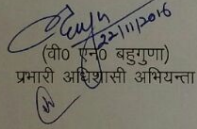 22/11/2016
(वी० एन० बहुगुणा)
प्रभारी अधिशासी अभियन्ता